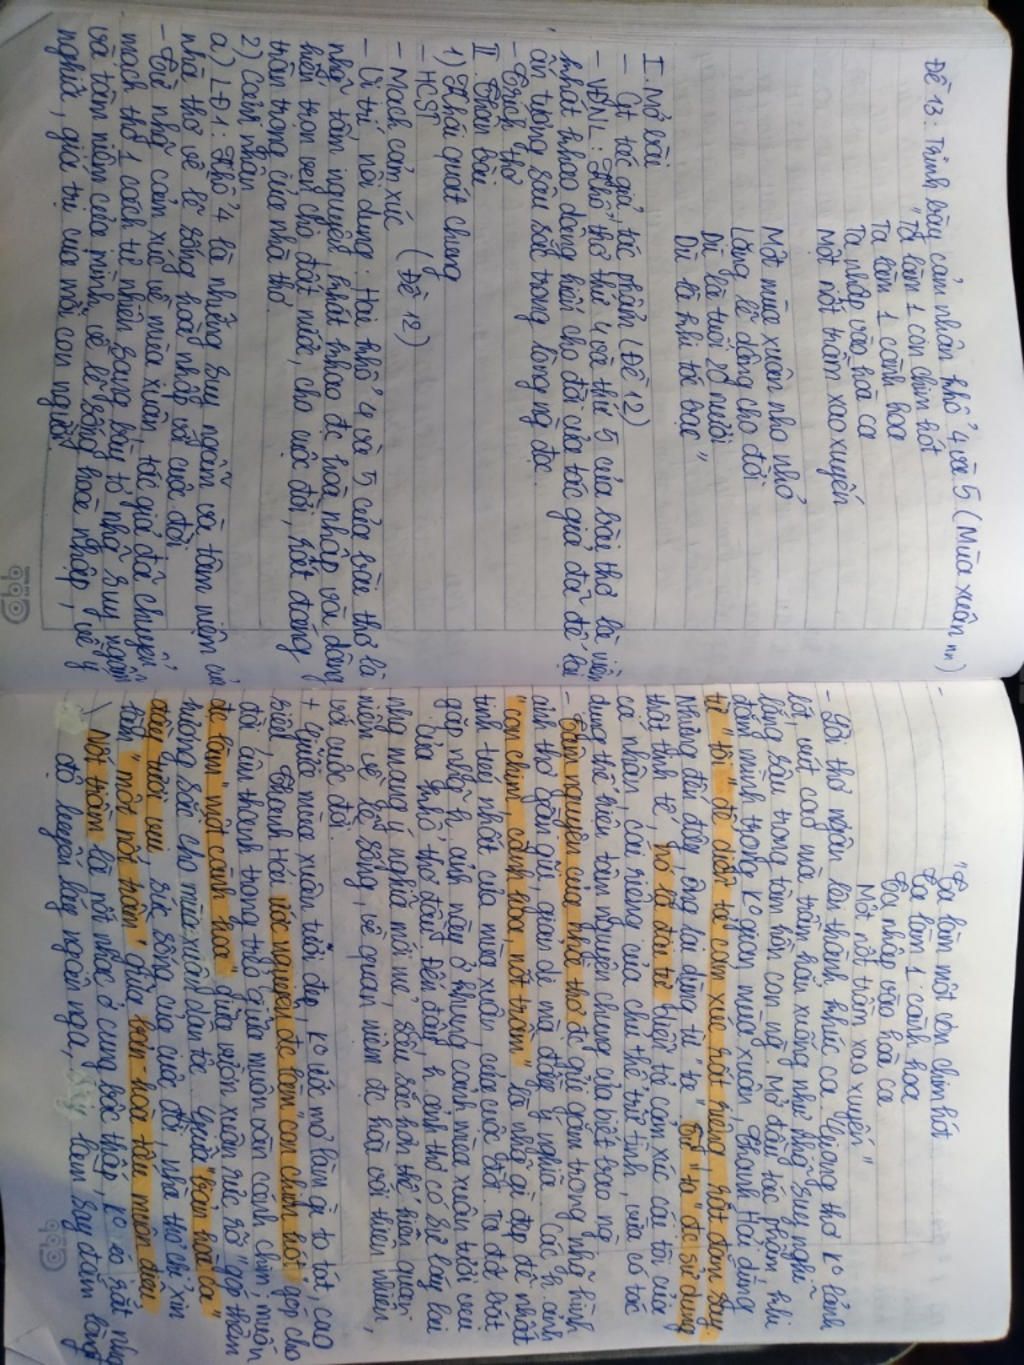 Đề 13: Trình bày cảm nhận khổ 4 và 5 (Mùa xuân nn)
"Ta làm 1 con chim hót
Ta làm 1 cành hoa
Ta nhập vào hoà ca
Một nốt trầm xao xuyến
Một mùa xuân nho nhỏ
Lặng lẽ dâng cho đời
Dù là tuổi 20 mươi
Dù là khi tóc bạc"
I. Mở bài
- Gt tác giả, tác phẩm (Đề 12)
- VĐNL: Khổ thơ thứ 4 và thứ 5 của bài thơ là niềm
khát khao dâng hiến cho đời của tác giả đã để lại
ấn tượng sâu sắc trong lòng ng đọc.
- Trích thơ
II. Thân bài
1) Khái quát chung
- HCST
- Mạch cảm xúc (Đề 12)
- Vị trí, nội dung: Hai khổ 4 và 5 của bài thơ là
những tâm nguyện, khát khao đc hoà nhập và dâng
hiến trọn vẹn cho đất nước, cho cuộc đời, rất đáng
trân trọng của nhà thơ.
2) Cảm nhận
a) LĐ1: Khổ 4 là những suy ngẫm và tâm niệm của
nhà thơ về lẽ sống hoà nhập với cuộc đời
- Từ những cảm xúc về mùa xuân, tác giả đã chuyển
mạch thơ 1 cách tự nhiên sang bày tỏ những suy ngẫm
và tâm niệm của mình về lẽ sống hoà nhập, về ý
nghĩa, giá trị của mỗi con người.
"Ta làm một con chim hót
Ta làm 1 cành hoa
Ta nhập vào hòa ca
Một nốt trầm xao xuyến"
- Lời thơ ngân lên thành khúc ca. Giọng thơ ko lảnh
lót, vút cao mà trầm lắng xuống như những suy nghĩ
lắng sâu trong tâm hồn con ng. Mở đầu tác phẩm, khi
đắm mình trong ko gian mùa xuân Thanh Hải dùng
từ "tôi" để diễn tả cảm xúc rất riêng, rất đắm say.
Nhưng đến đây, ông lại dùng từ "ta". Từ "ta" đc sử dụng
thật tinh tế, nó là đại từ biểu tỏ cảm xúc cái tôi của
cá nhân, cái riêng của chủ thể trữ tình, vừa có tác
dụng thể hiện tâm nguyện chung của biết bao ng
- Tâm nguyện của nhà thơ đc gửi gắm trong những hình
ảnh thơ gần gũi, giản dị mà đầy ý nghĩa. Các h. ảnh
"con chim, cành hoa, nốt trầm" là những gì đẹp đẽ nhất
tinh túy nhất của mùa xuân, của cuộc đời. Ta đã bắt
gặp những h. ảnh này ở khung cảnh mùa xuân tươi vui
của khổ thơ đầu. Đến đây, h. ảnh thơ có sự láy lại
nhưng mang ý nghĩa mới mẻ, sâu sắc hơn thể hiện quan
niệm về lẽ sống, về quan niệm đc hòa với thiên nhiên,
với cuộc đời.
+ Giữa mùa xuân tươi đẹp, ko ước mơ làm gì to tát, cao
siêu, Thanh Hải ước nguyện đc làm "con chim hót" góp cho
đời âm thanh trong trẻo giữa muôn vàn cánh chim, muốn
đc làm "một cành hoa" giữa vườn xuân rực rỡ góp thêm
hương sắc cho mùa xuân dân tộc. Giữa "bản hòa ca"
diệu tươi vui, sức sống của cuộc đời nhà thơ chỉ xin
làm "một nốt trầm" giữa bản hòa tấu muôn điệu
Nốt trầm là nốt nhạc ở cung bậc thấp, ko có gì nổi
độ luyến láy, ngân nga, làm say đắm lòng